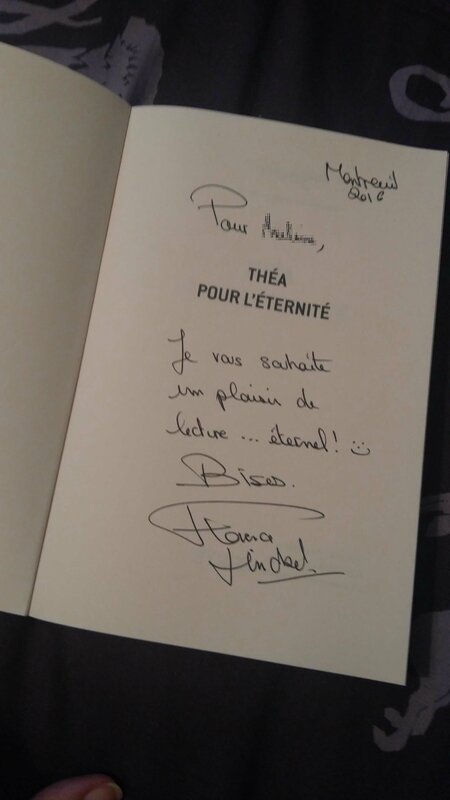 Montreuil
2016
Pour
THÉA
POUR L'ÉTERNITÉ
Je vous souhaite
un plaisir de
lecture ... éternel! :)
Bises.
Florence
Hinckel